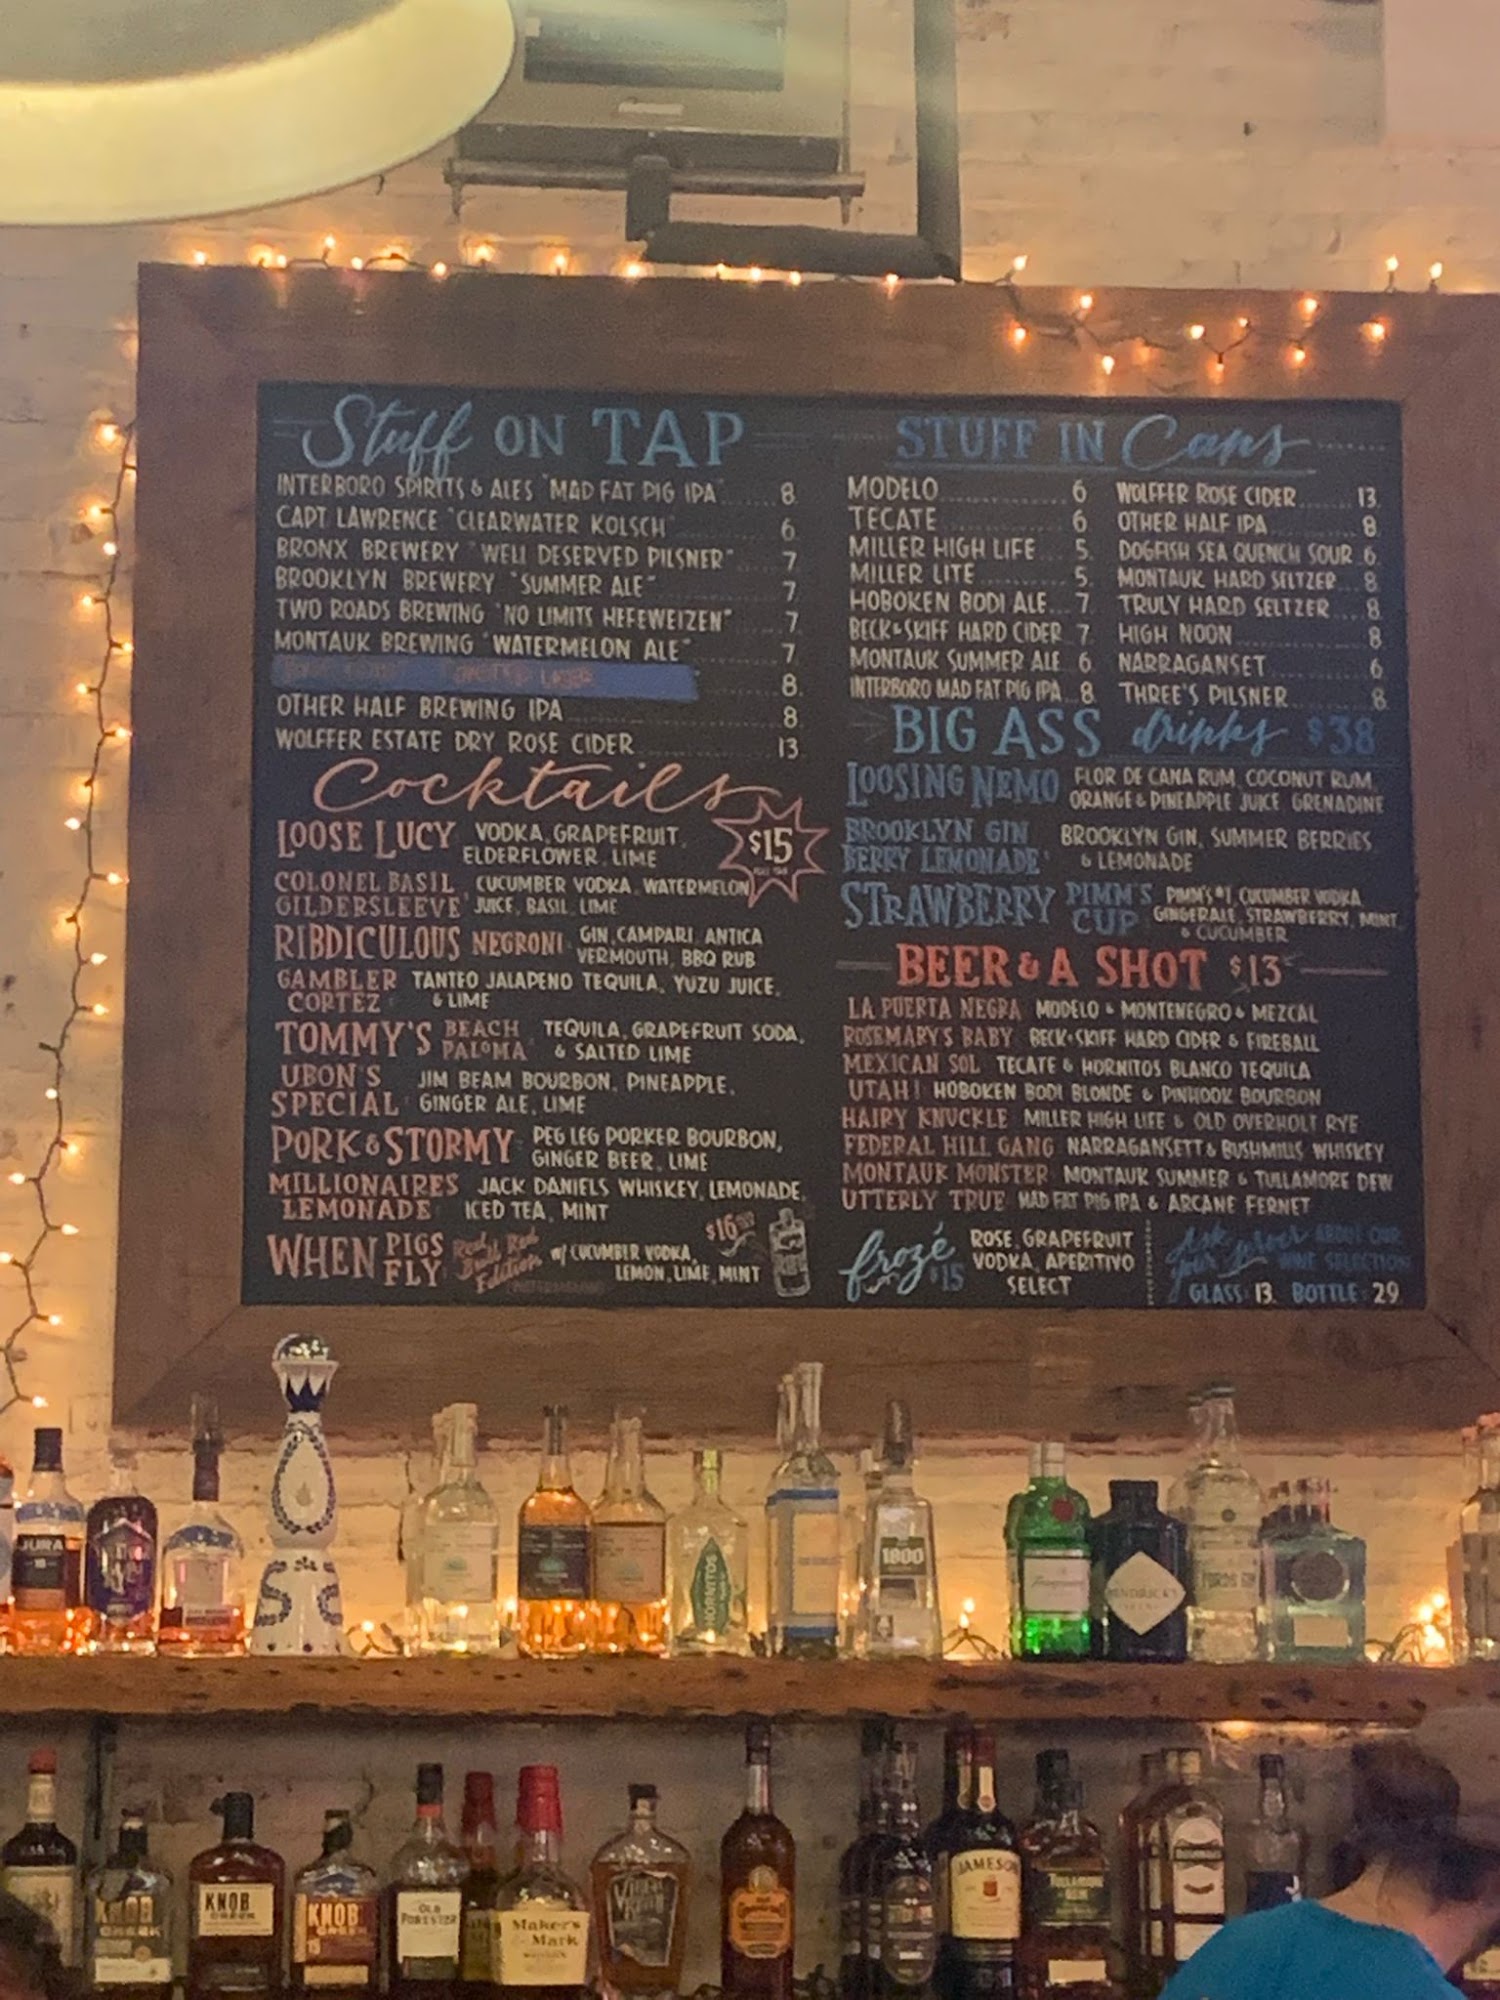 Stuff ON TAP
INTERBORO SPIRITS & ALES "MAD FAT PIG IPA" 8
CAPT LAWRENCE "CLEARWATER KOLSCH" 6
BRONX BREWERY "WELL DESERVED PILSNER" 7
BROOKLYN BREWERY "SUMMER ALE" 7
TWO ROADS BREWING "NO LIMITS HEFEWEIZEN" 7
MONTAUK BREWING "WATERMELON ALE" 7
8
OTHER HALF BREWING IPA 8
WOLFFER ESTATE DRY ROSE CIDER 13
Cocktails
$15
LOOSE LUCY VODKA, GRAPEFRUIT,
ELDERFLOWER, LIME
COLONEL BASIL CUCUMBER VODKA, WATERMELON
GILDERSLEEVE JUICE, BASIL, LIME
RIBDICULOUS NEGRONI GIN, CAMPARI, ANTICA
VERMOUTH, BBQ RUB
GAMBLER TANTEO JALAPENO TEQUILA, YUZU JUICE,
CORTEZ & LIME
TOMMY'S BEACH TEQUILA, GRAPEFRUIT SODA,
PALOMA & SALTED LIME
UBON'S JIM BEAM BOURBON, PINEAPPLE,
SPECIAL GINGER ALE, LIME
PORK & STORMY PEG LEG PORKER BOURBON,
GINGER BEER, LIME
MILLIONAIRES JACK DANIELS WHISKEY, LEMONADE,
LEMONADE ICED TEA, MINT
$16
WHEN PIGS FLY Red Bull Red Edition w/ CUCUMBER VODKA,
LEMON, LIME, MINT
STUFF IN Cans
MODELO 6
TECATE 6
MILLER HIGH LIFE 5
MILLER LITE 5
HOBOKEN BODI ALE 7
BECK & SKIFF HARD CIDER 7
MONTAUK SUMMER ALE 6
INTERBORO MAD FAT PIG IPA 8
WOLFFER ROSE CIDER 13
OTHER HALF IPA 8
DOGFISH SEA QUENCH SOUR 6
MONTAUK HARD SELTZER 8
TRULY HARD SELTZER 8
HIGH NOON 8
NARRAGANSET 6
THREE'S PILSNER 8
BIG ASS drinks $38
LOOSING NEMO FLOR DE CANA RUM, COCONUT RUM,
ORANGE & PINEAPPLE JUICE GRENADINE
BROOKLYN GIN BROOKLYN GIN, SUMMER BERRIES
BERRY LEMONADE & LEMONADE
STRAWBERRY PIMM'S CUP PIMM'S #1, CUCUMBER VODKA
GINGERALE, STRAWBERRY, MINT
& CUCUMBER
BEER & A SHOT $13
LA PUERTA NEGRA MODELO & MONTENEGRO & MEZCAL
ROSEMARY'S BABY BECK & SKIFF HARD CIDER & FIREBALL
MEXICAN SOL TECATE & HORNITOS BLANCO TEQUILA
UTAH! HOBOKEN BODI BLONDE & PINHOOK BOURBON
HAIRY KNUCKLE MILLER HIGH LIFE & OLD OVERHOLT RYE
FEDERAL HILL GANG NARRAGANSETT & BUSHMILLS WHISKEY
MONTAUK MONSTER MONTAUK SUMMER & TULLAMORE DEW
UTTERLY TRUE MAD FAT PIG IPA & ARCANE FERNET
frozé $15
ROSE, GRAPEFRUIT
VODKA, APERITIVO
SELECT
Ask your server ABOUT OUR
WINE SELECTION
GLASS: 13 BOTTLE: 29
JURA
HORNITOS
1800
HENDRICK'S
FORDS GIN
KNOB CREEK
KNOB
KNOB
OLD FORESTER
Maker's Mark
JAMESON
TULLAMORE